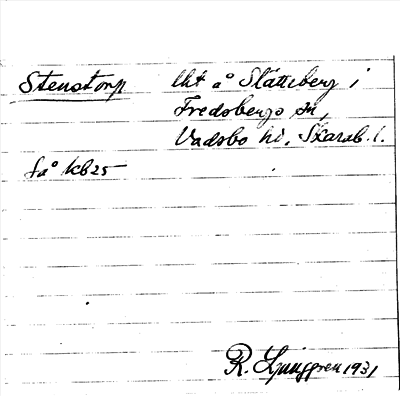 Stenstorp lht å Slätteberg i
Fredsbergs sn,
Vadsbo hd. Skarab. l.
så KB25
R. Ljunggren 1931